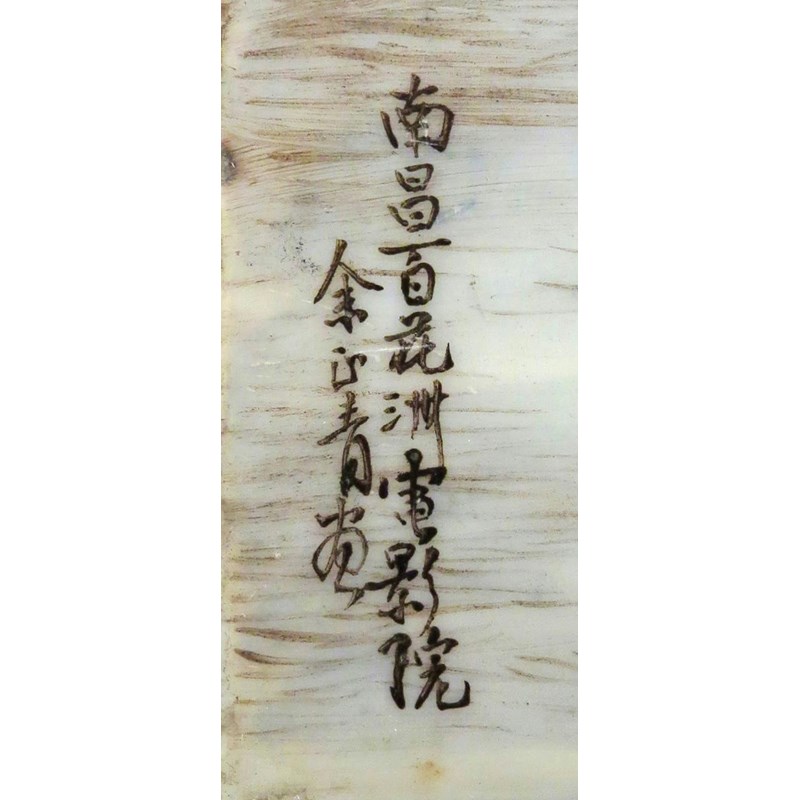 南昌百花洲電影院
余正青画